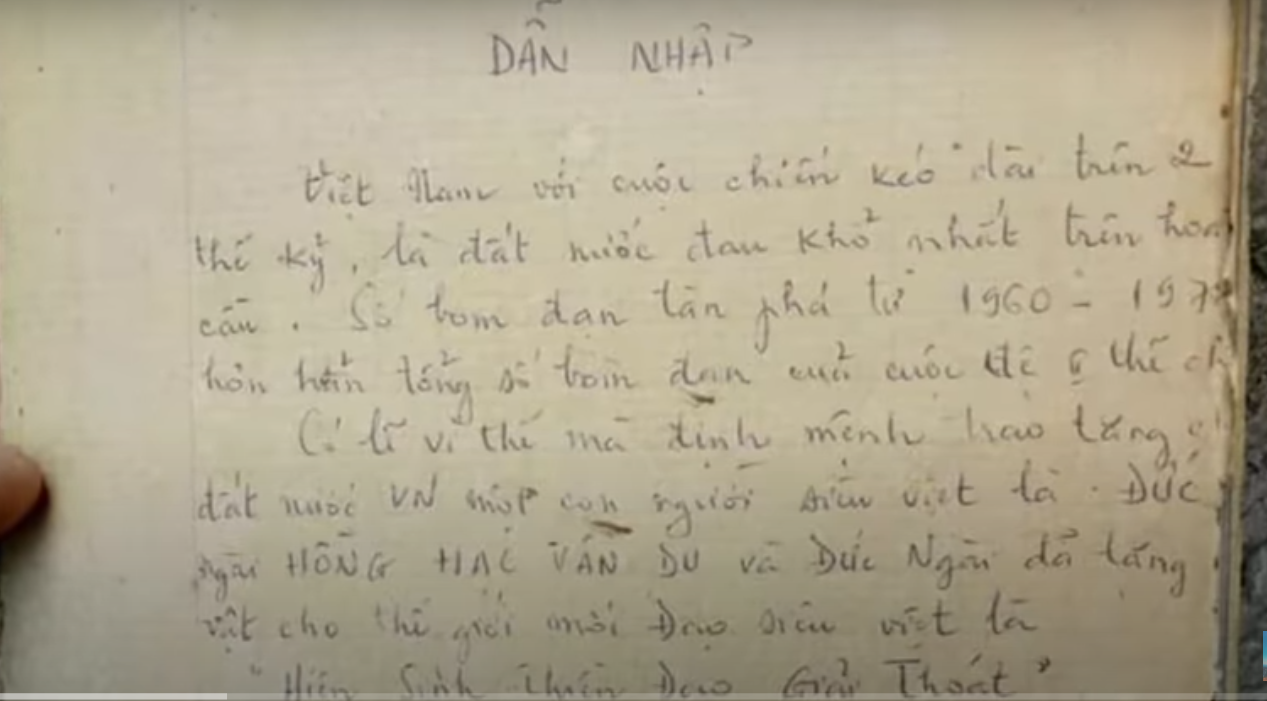 DẪN NHẬP
Việt Nam với cuộc chiến kéo dài trên 2
thế kỷ, là đất nước đau khổ nhất trên hoàn
cầu. Số bom đạn tàn phá từ 1960 - 197
hơn hẳn tổng số bom đạn của cuộc đệ thế
Có lẽ vì thế mà định mệnh trao tặng
đất nước VN một con người siêu việt là ĐỨC
ngài HỒNG HẠC VÂN DU và Đức Ngài đã tặng
vật cho thế giới mối Đạo siêu việt là
"Hiện Sinh Thiền Đạo Giải Thoát"